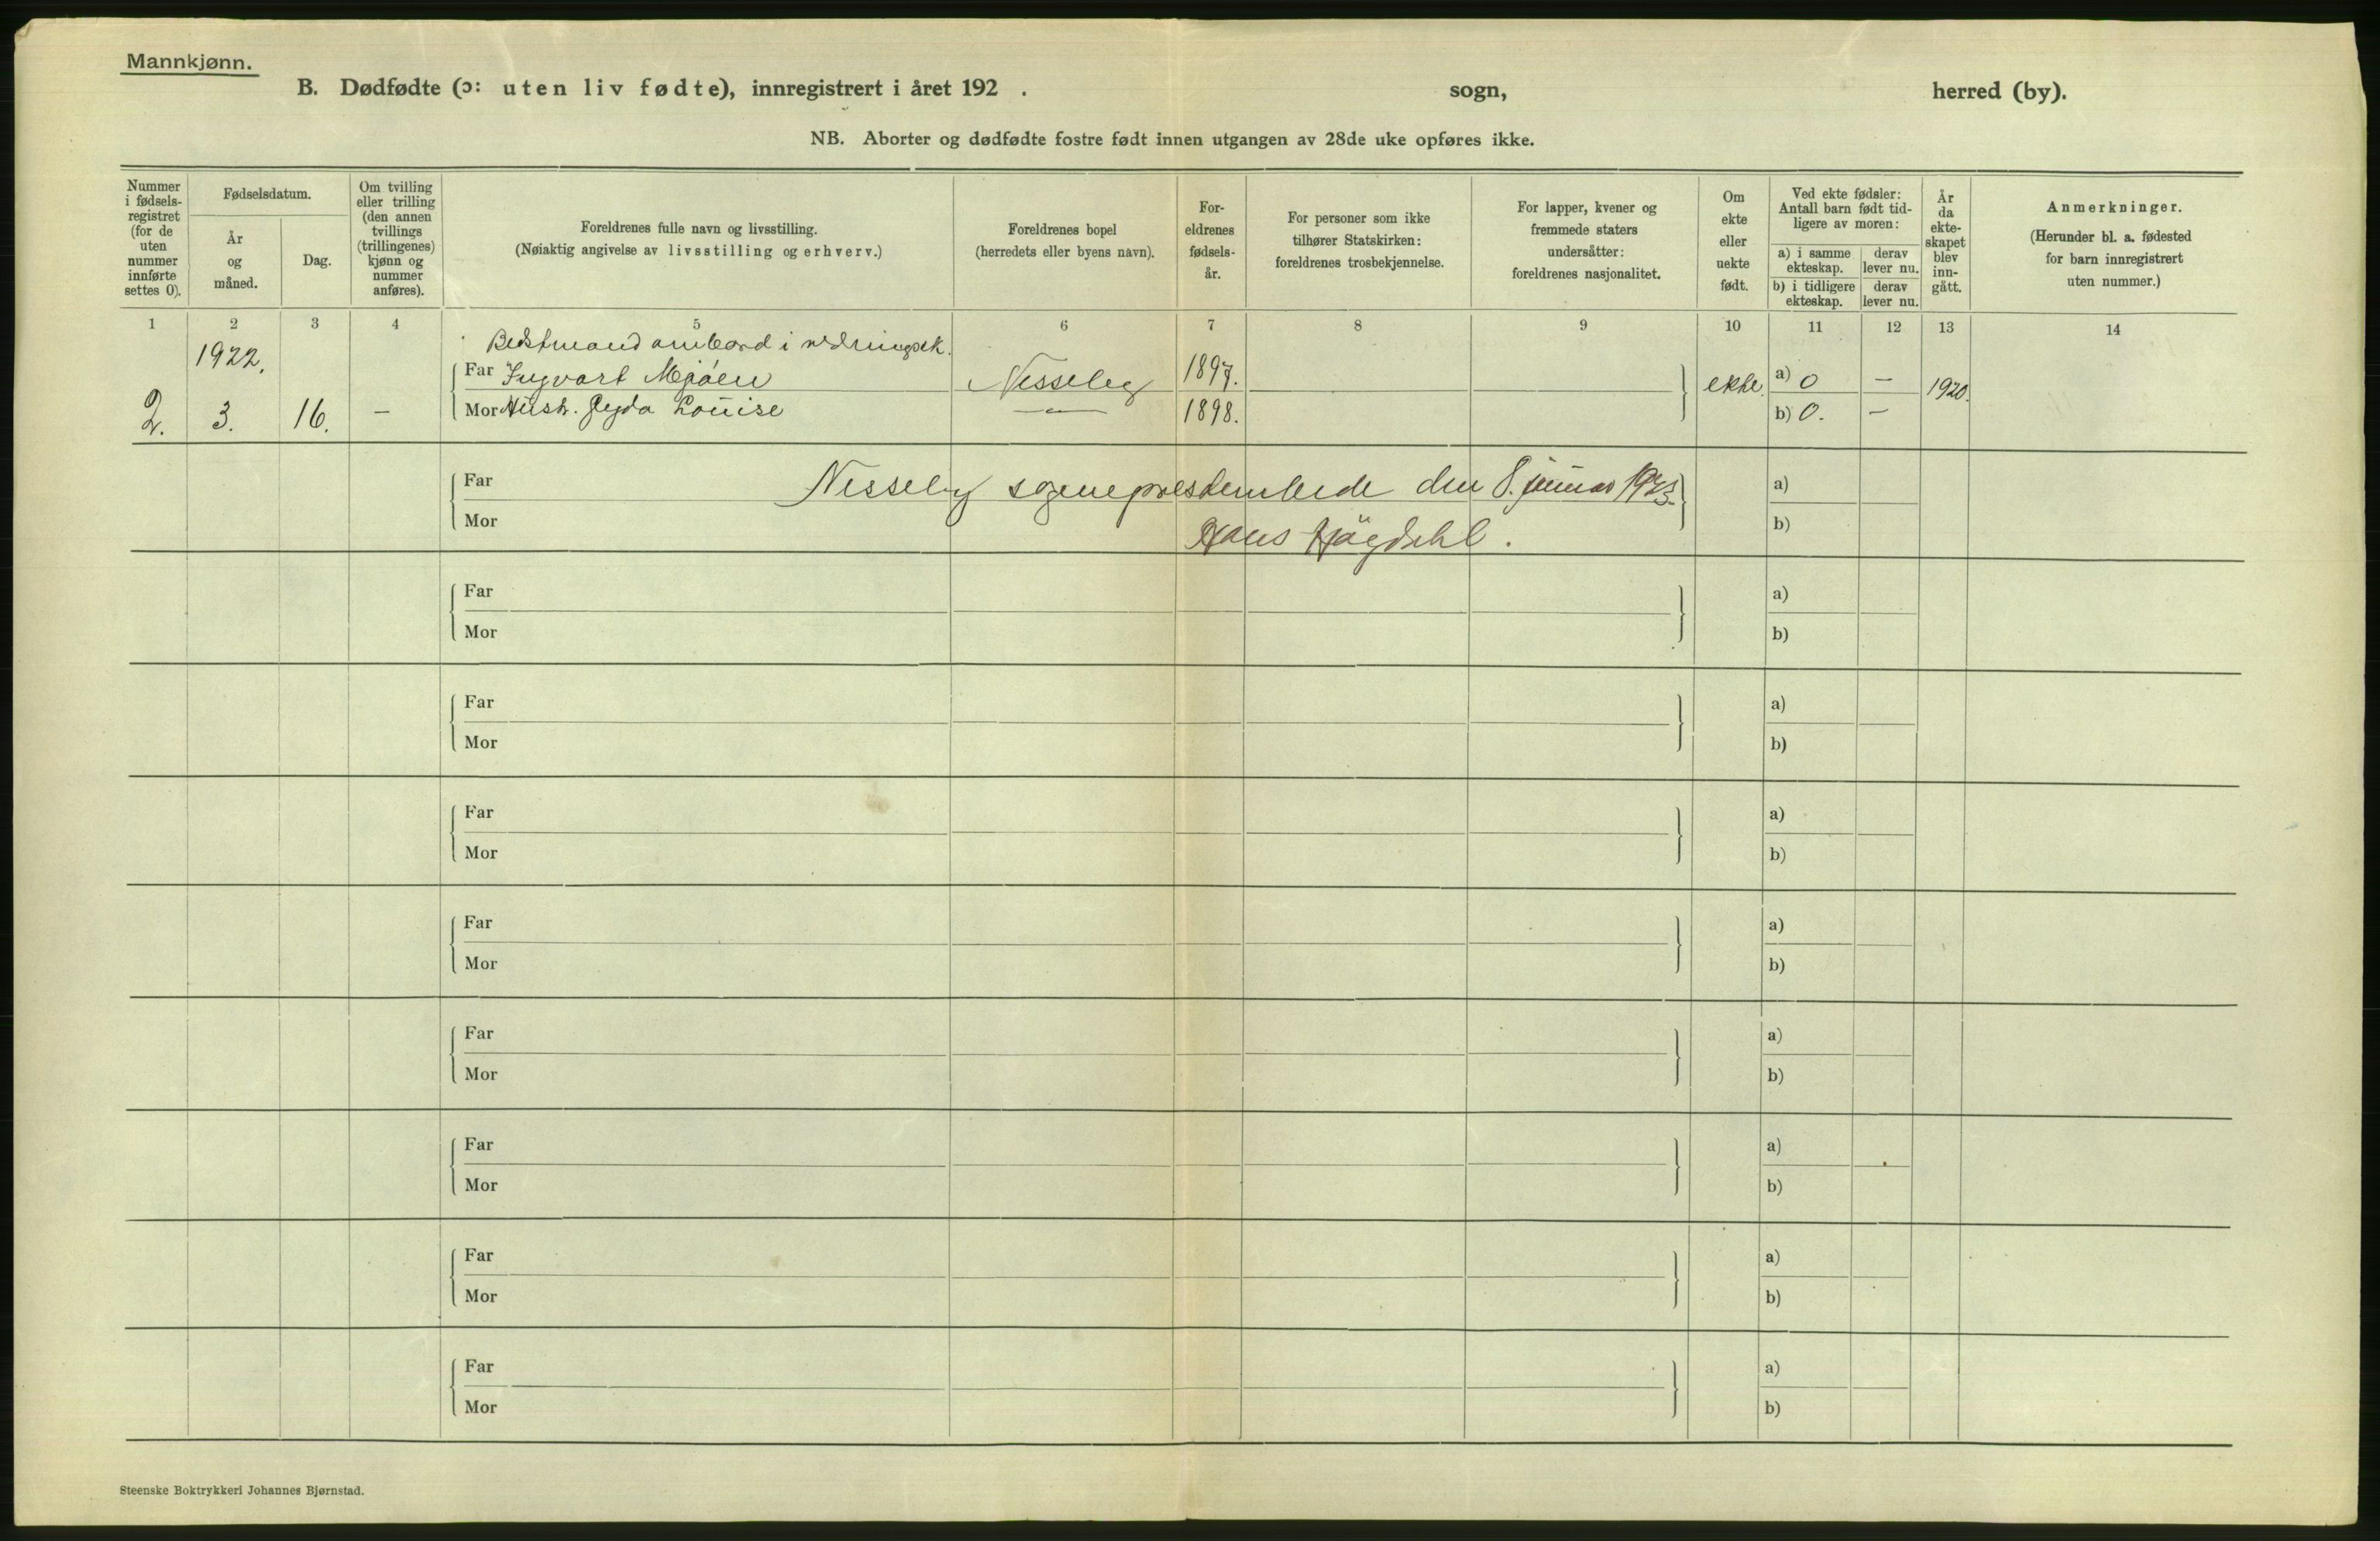 Mannkjønn.
B. Dødfødte (ɔ: uten liv fødte), innregistrert i året 192 . sogn, herred (by).
NB. Aborter og dødfødte fostre født innen utgangen av 28de uke opføres ikke.
Nummer i fødsels-registret (for de uten nummer innførte settes 0).
Fødselsdatum.
År og måned.
Dag.
Om tvilling eller trilling (den annen tvillings (trillingenes) kjønn og nummer anføres).
Foreldrenes fulle navn og livsstilling.
(Nøiaktig angivelse av livsstilling og erhverv.)
Foreldrenes bopel
(herredets eller byens navn).
For-eldrenes fødsels-år.
For personer som ikke tilhører Statskirken: foreldrenes trosbekjennelse.
For lapper, kvener og fremmede staters undersåtter: foreldrenes nasjonalitet.
Om ekte eller uekte født.
Ved ekte fødsler: Antall barn født tid-ligere av moren:
a) i samme ekteskap. derav lever nu.
b) i tidligere ekteskap. derav lever nu.
År da ekte-skapet blev inn-gått.
Anmerkninger.
(Herunder bl. a. fødested for barn innregistrert uten nummer.)
1 2 3 4 5 6 7 8 9 10 11 12 13 14
Bedstmand ombord i
1922.
Far Ingvart Mjøen Nesseby 1897. ekte. a) 0 – 1920.
2. 3. 16. – Mor Hustr. Gyda Louise —〃— 1898. b) 0. –
Far Nesseby sogneprestembede den 8. januar 1923. a)
Mor Hans Høgdahl. b)
Far a)
Mor b)
Far a)
Mor b)
Far a)
Mor b)
Far a)
Mor b)
Far a)
Mor b)
Far a)
Mor b)
Far a)
Mor b)
Far a)
Mor b)
Steenske Boktrykkeri Johannes Bjørnstad.